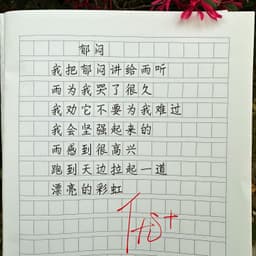 郁闷
我把郁闷讲给雨听
雨为我哭了很久
我劝它不要为我难过
我会坚强起来的
雨感到很高兴
跑到天边拉起一道
漂亮的彩虹